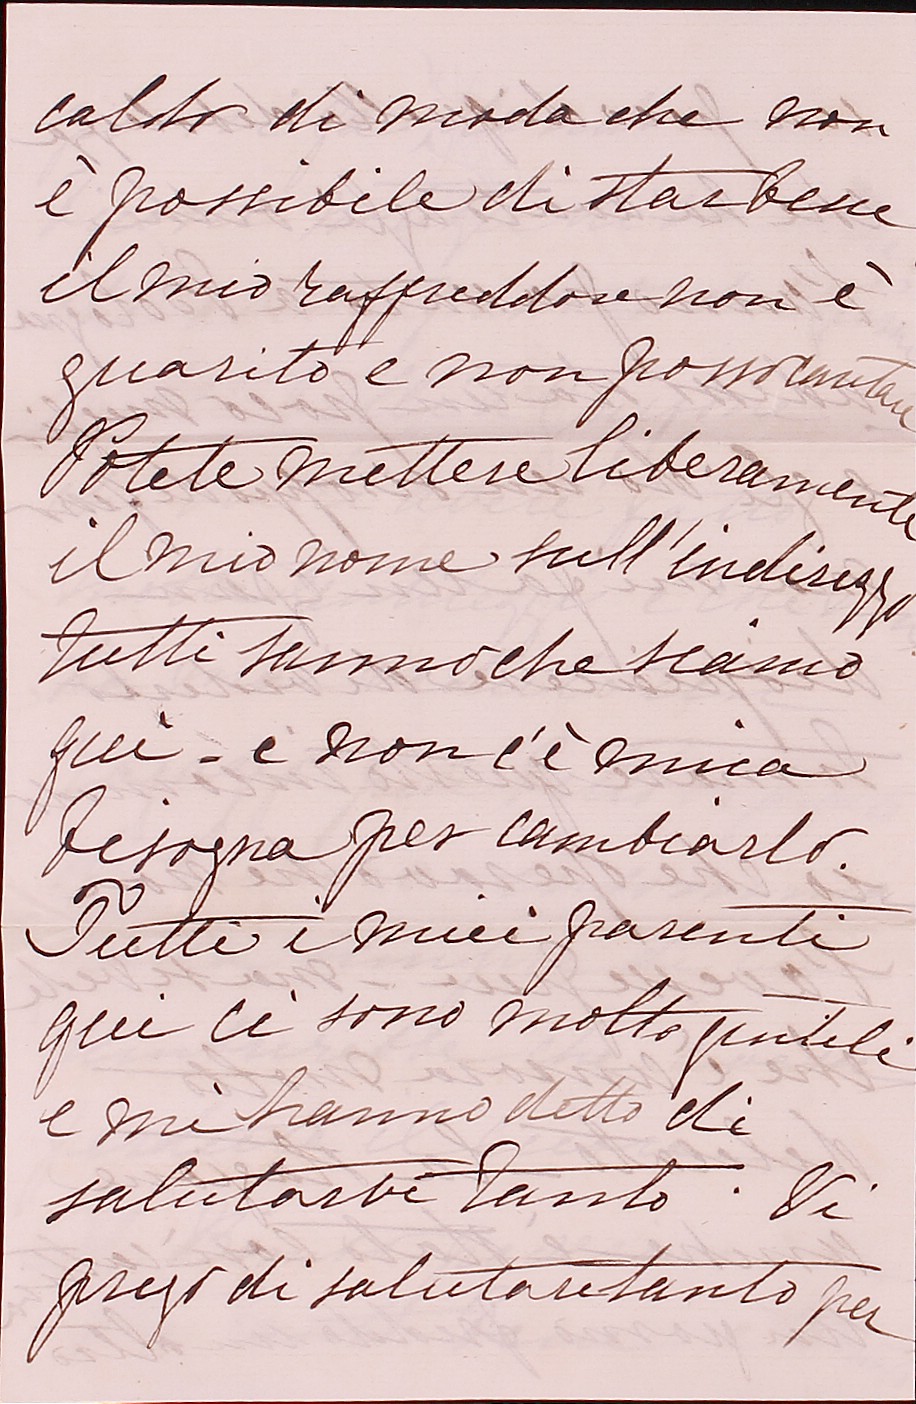 caldo di moda che non
è possibile di star bene
il mio raffreddore non è
guarito e non posso cantare
Potete mettere liberamente
il mio nome sull'indirizzo
tutti sanno che siamo
qui - e non c'è mica
bisogna per cambiarlo.
Tutti i miei parenti
qui ci sono molto gentili
e mi hanno detto di
salutarvi tanto. Vi
prego di salutare tanto per